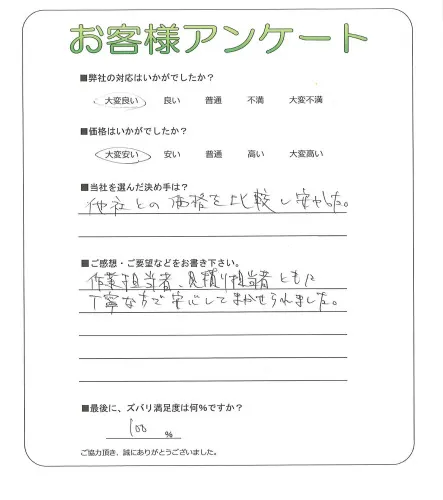 お客様アンケート
■弊社の対応はいかがでしたか？
大変良い 良い 普通 不満 大変不満
■価格はいかがでしたか？
大変安い 安い 普通 高い 大変高い
■当社を選んだ決め手は？
他社との価格を比較し安かった。
■ご感想・ご要望などをお書き下さい。
作業担当者、見積り担当者ともに
丁寧な方で安心してまかせられました。
■最後に、ズバリ満足度は何%ですか？
100 %
ご協力頂き、誠にありがとうございました。